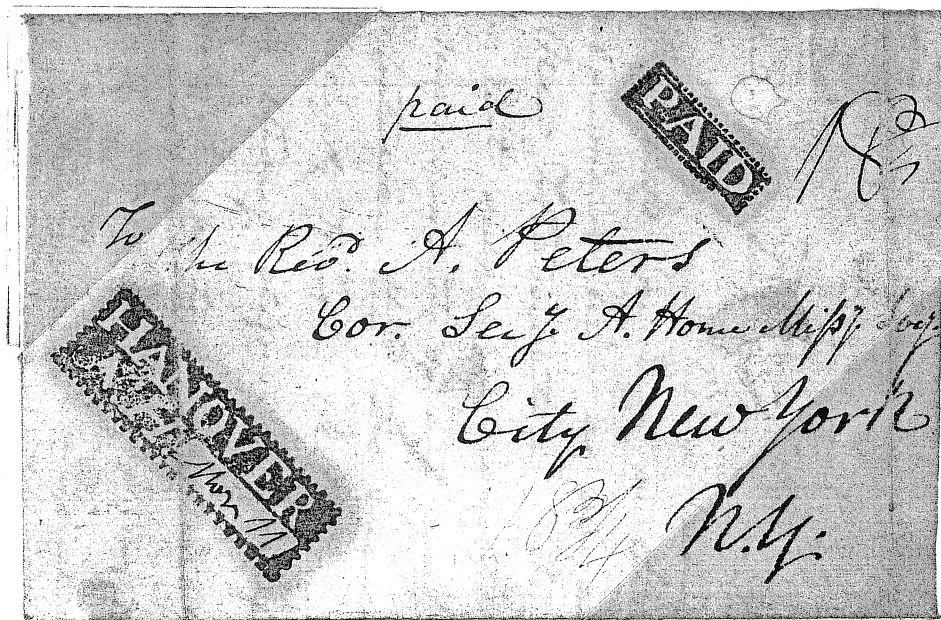 paid
PAID
18 3/4
To the Revd. A. Peters
Cor. Secy. A. Home Missy. Socy.
City New York
N.Y.
HANOVER
Mar 11
18 3/4